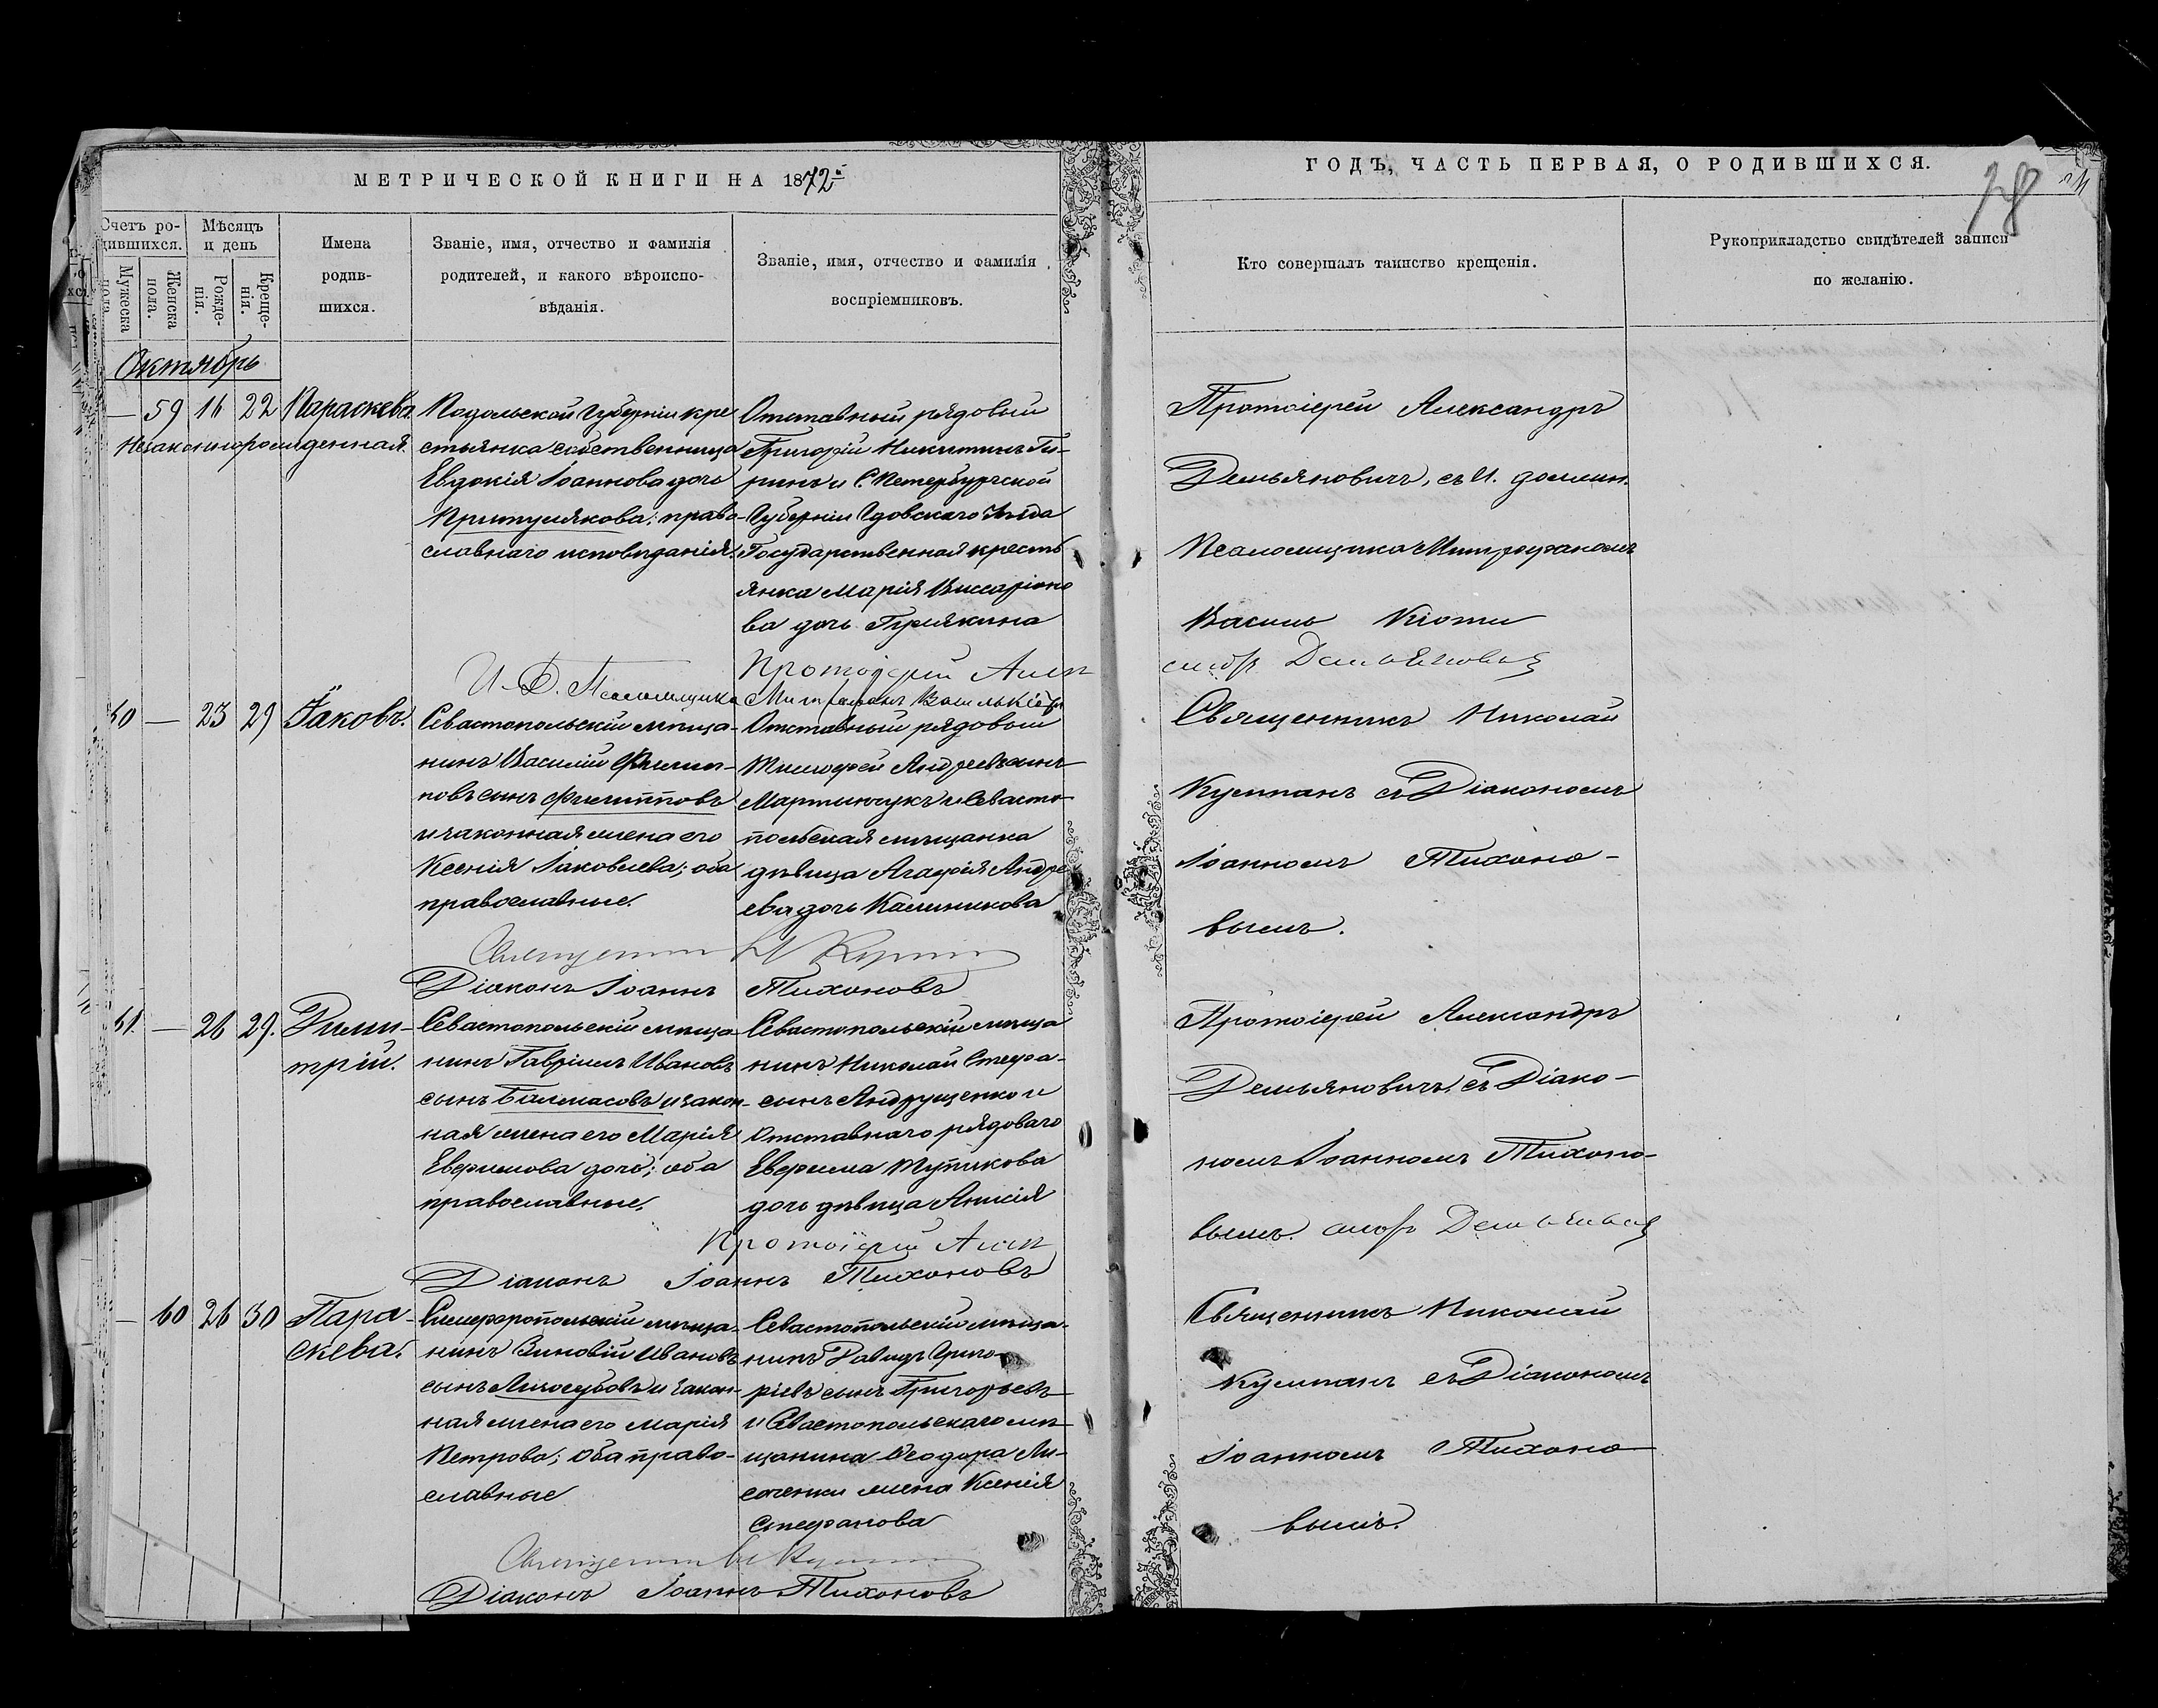 МЕТРИЧЕСКОЙ КНИГИ НА 1872й
ГОДЪ, ЧАСТЬ ПЕРВАЯ, О РОДИВШИХСЯ.
28
Счетъ ро-
дившихся.
Мужеска
пола.
Женска
пола.
Мѣсяцъ
и день
Рожде-
нія.
Креще-
нія.
Имена
родив-
шихся.
Званіе, имя, отчество и фамилія
родителей, и какого вѣроиспо-
вѣданія.
Званіе, имя, отчество и фамилія
воспріемниковъ.
Кто совершалъ таинство крещенія.
Рукоприкладство свидѣтелей записи
по желанію.
Октябрь
— 59 16 22 Параскева.
Незаконнорожденная.
Подольской Губерніи кре
стьянка собственница
Евдокія Іоаннова дочь
Притулякова; право-
славнаго исповѣданія.
Отставный рядовый
Григорій Никитинъ Ги-
ринъ и С. Петербургской
Губерніи Гдовскаго уѣзда
Государственная кресть
янка Марія Виссаріоно
ва дочь Гурякина
Протоіерей Александръ
Демьяновичъ, съ И. должн.
Псаломщика Митрофаномъ
Василь Кіоти
Протоіерей Алек
сандръ Демьяновичъ
И. Д. Псаломщика Митрофанъ
60 — 23 29 Іаковъ.
Севастопольскій мѣща-
нинъ Василій Филип-
повъ сынъ Филипповъ
и законная жена его
Ксенія Іаковлева; оба
православные.
Отставный рядовый
Тимофей Андреевъ сынъ
Мартинчукъ и Севасто-
польская мѣщанка
дѣвица Агафія Андре
ева дочь Калиникова
Священникъ Николай
Кулипанъ съ Діакономъ
Іоанномъ Тихоно-
вымъ.
Священникъ Н
Діаконъ Іоаннъ Тихоновъ
61. — 26 29. Дими-
трій.
Севастопольскій мѣща-
нинъ Гавріилъ Ивановъ
сынъ Балмасовъ и закон-
ная жена его Марія
Евфимова дочь; оба
православные.
Севастопольскій мѣща
нинъ Николай Стефа-
сынъ Андрущенко и
Отставнаго рядоваго
Евфима Тупикова
дочь дѣвица Анисія
Протоіерей Александръ
Демьяновичъ, съ Діако-
номъ Іоанномъ Тихоно-
вымъ.
Протоіерей Алек
Діаконъ Іоаннъ Тихоновъ
— 60 26 30 Пара-
скева.
Симферопольскій мѣща-
нинъ Зиновій Ивановъ
сынъ Лизогубовъ и закон-
ная жена его Марія
Петрова; оба право-
славные
Севастопольскій мѣща-
нинъ Давидъ Григо-
ріевъ сынъ Григорьевъ
и Севастопольскаго мѣ-
щанина Ѳеодора Ли-
сеченки жена Ксенія
Стефанова
Священникъ Николай
Кулипанъ съ Діакономъ
Іоанномъ Тихоно
вымъ.
Священникъ Н
Діаконъ Іоаннъ Тихоновъ